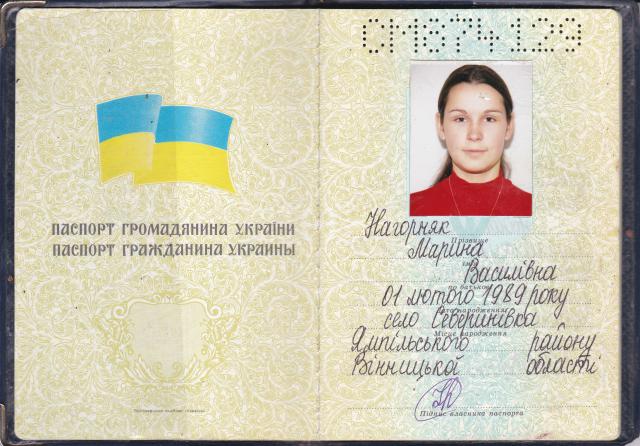 СМ874129
ПАСПОРТ ГРОМАДЯНИНА УКРАЇНИ
ПАСПОРТ ГРАЖДАНИНА УКРАИНЫ
Нагорняк
Прізвище
Марина
ім'я
Василівна
по батькові
01 лютого 1989 року
Дата народження
село Северинівка
Місце народження
Ямпільського району
Вінницької області
Підпис власника паспорта